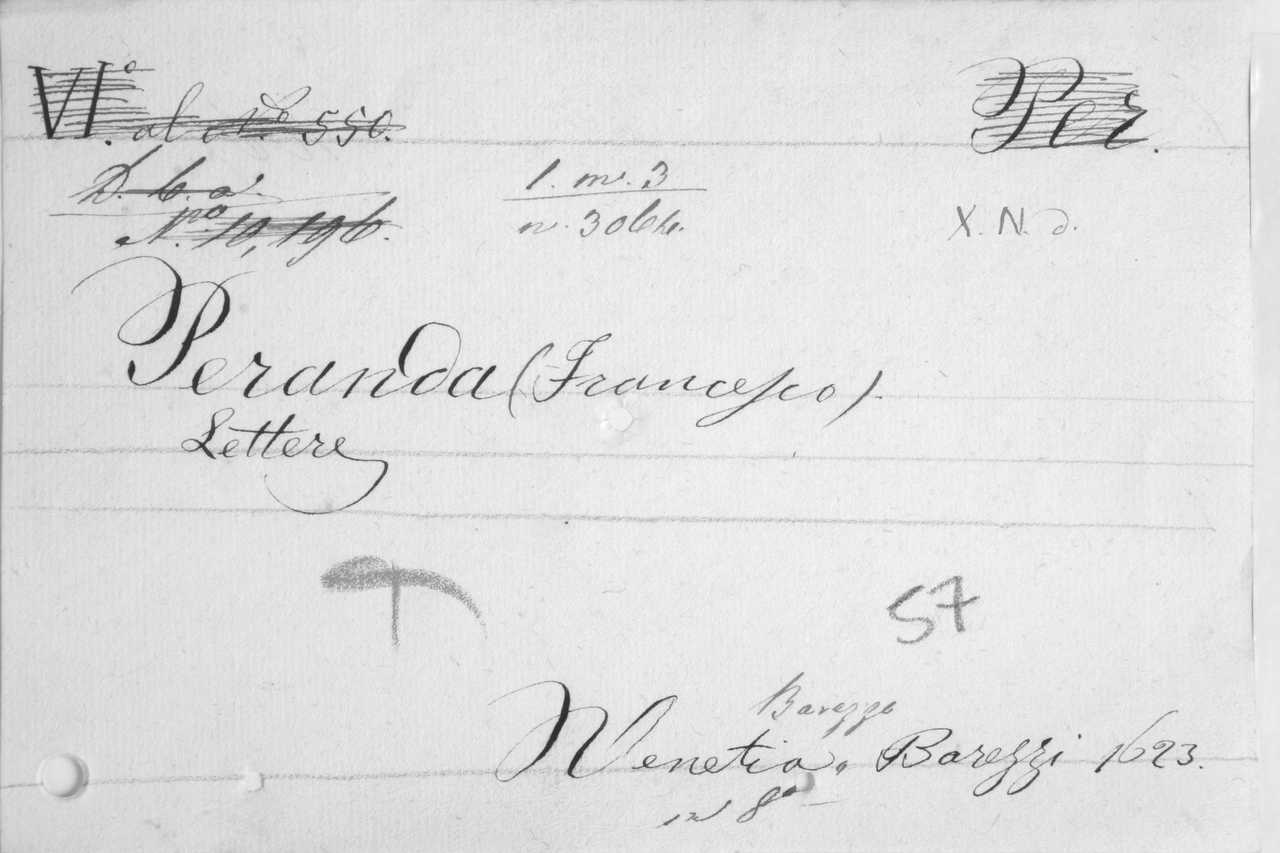 VI.º al Nº 550. Per.
D. b. a. 1. m. 3
Nº 10,196. n. 3064. X. N. d.
Peranda (Francesco).
Lettere
57
Barezzo
Venetia. Barezzi 1623.
in 8º